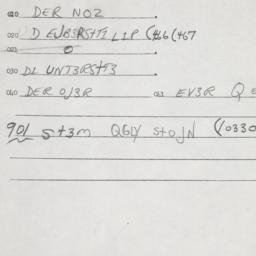 010 DER NOZ.
020 D EJB3RSHT1 L1P (466 (467
021 0
030 DL UNT3RSHT3.
040 DER OJ3R 041 EV3R Q E
901 St3m QGLY StOJN ((0330